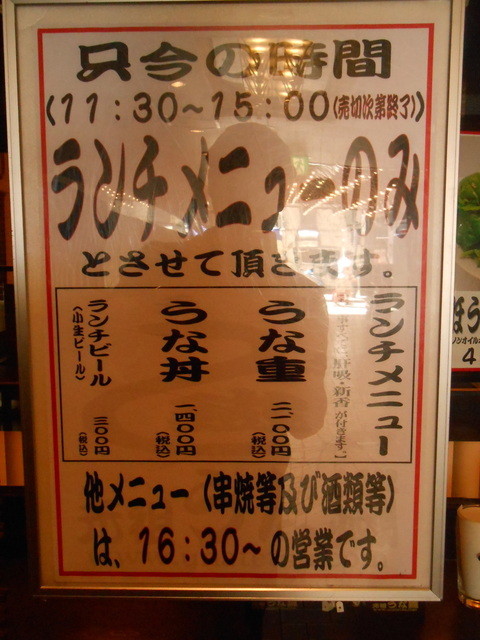 只今の時間
(11:30～15:00(売切次第終了))
ランチメニューのみ
とさせて頂きます。
ランチメニュー
肝吸・新香が付きます。】
うな重
二一〇〇円
(税込)
うな丼
一四〇〇円
(税込)
ランチビール
(小生ビール)
三〇〇円
(税込)
他メニュー(串焼等及び酒類等)
は、16:30～の営業です。
ほう
ノンオイル
4